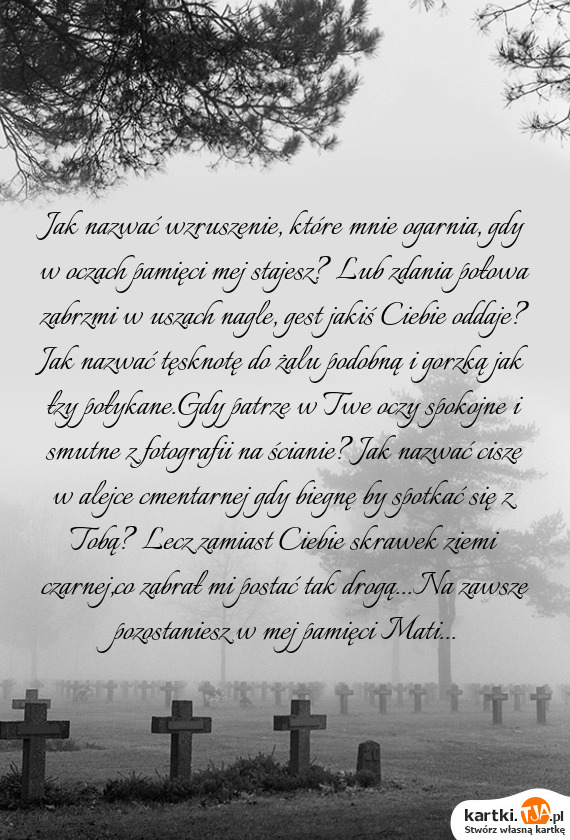 Jak nazwać wzruszenie, które mnie ogarnia, gdy
w oczach pamięci mej stajesz? Lub zdania połowa
zabrzmi w uszach nagle, gest jakiś Ciebie oddaje?
Jak nazwać tęsknotę do żalu podobną i gorzką jak
łzy połykane.Gdy patrzę w Twe oczy spokojne i
smutne z fotografii na ścianie? Jak nazwać ciszę
w alejce cmentarnej gdy biegnę by spotkać się z
Tobą? Lecz zamiast Ciebie skrawek ziemi
czarnej,co zabrał mi postać tak drogą...Na zawsze
pozostaniesz w mej pamięci Mati...
kartki.TJA.pl
Stwórz własną kartkę